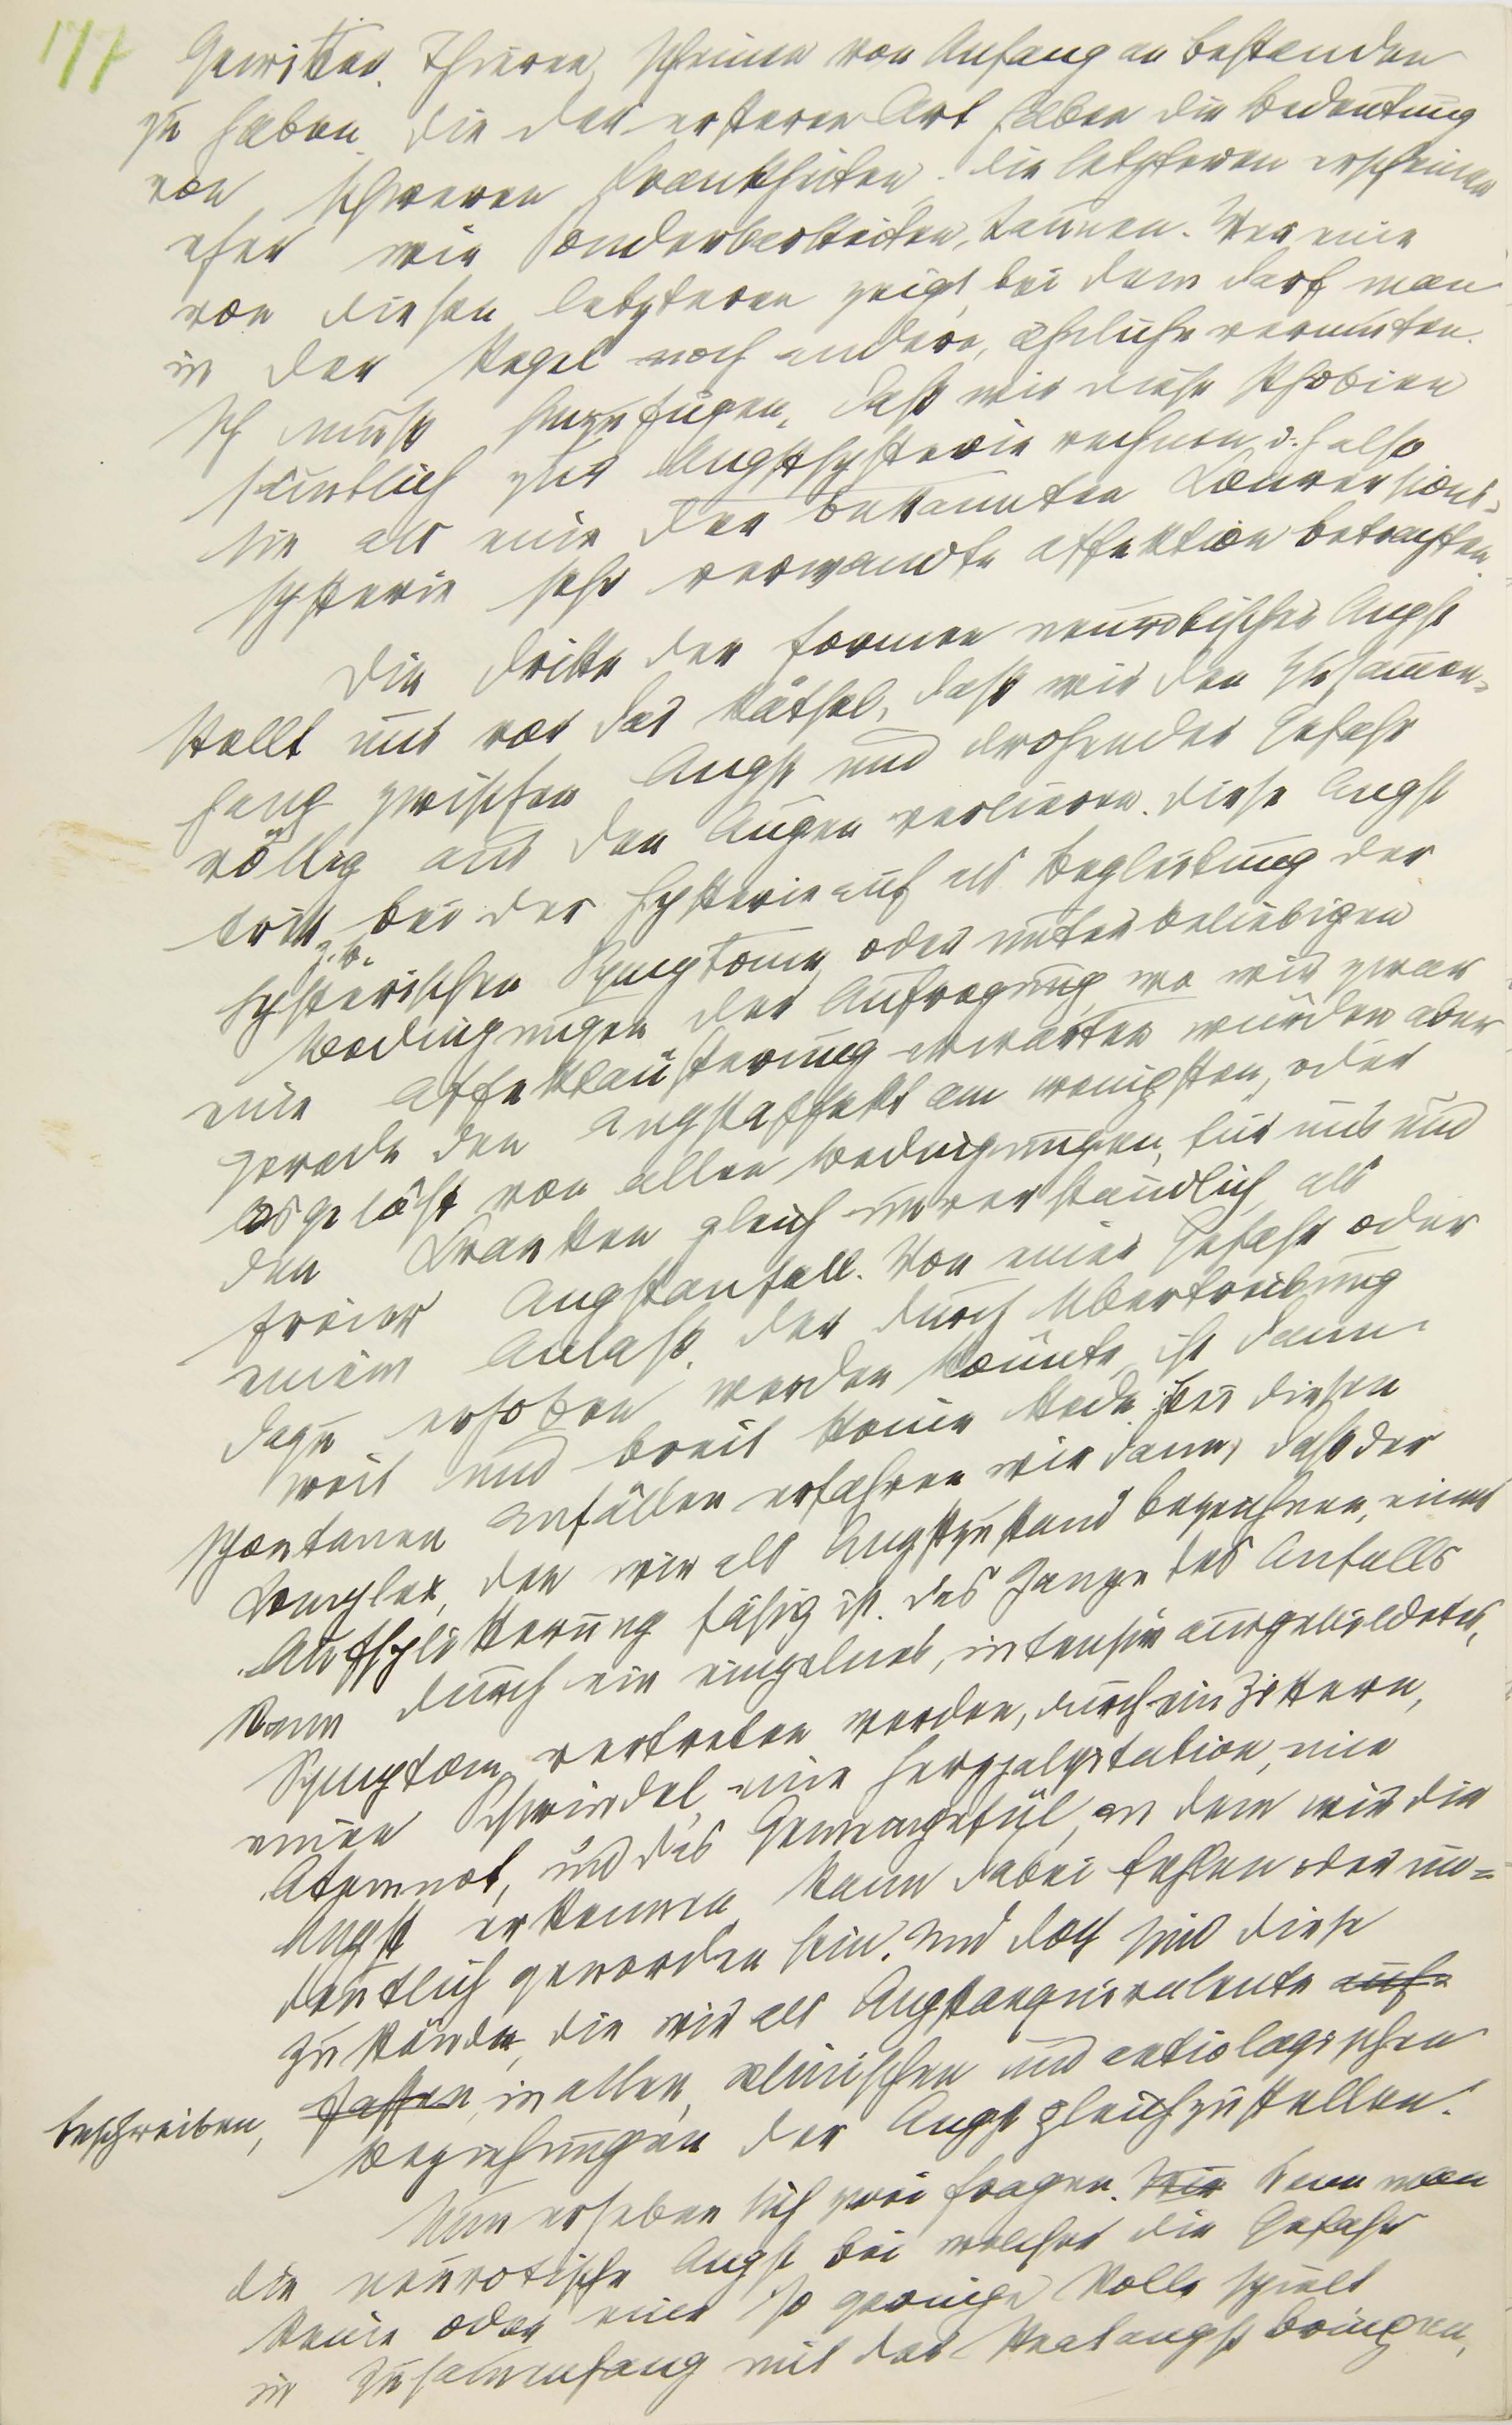 177
Gewitter, Thieren, scheinen von Anfang an bestanden
zu haben. Die der ersteren Art haben die Bedeutung
von schweren Krankheiten, die letzteren erscheinen
eher wie Sonderbarkeiten, Launen. Wer eine
von diesen letzteren zeigt, bei dem darf man
in der Regel noch andere, ähnliche vermuten.
Ich muss hinzufügen, dass wir diese Phobien
sämtlich zur Angsthysterie rechnen, d. h. also
sie als eine der bekannten Conversions-
hysterie sehr verwandte Affektion betrachten.
Die dritte der Formen neurotischer Angst
stellt uns vor das Rätsel, dass wir den Zusammen-
hang zwischen Angst und drohender Gefahr
völlig aus den Augen verlieren. Diese Angst
tritt z. B. bei der Hysterie auf als Begleitung der
hysterischen Symptome, oder unter beliebigen
Bedingungen der Aufregung, wo wir zwar
eine Affektäusserung erwarten würden aber
gerade den Angstaffekt am wenigsten, oder
losgelöst von allen Bedingungen, für uns und
den Kranken gleich unverständlich, als
freier Angstanfall. Von einer Gefahr oder
einem Anlass, der durch Übertreibung
dazu erhoben werden könnte, ist dann
weit und breit keine Rede. Bei diesen
spontanen Anfällen erfahren wir dann, dass der
Complex, den wir als Angstzustand bezeichnen, einer
Aufsplitterung fähig ist. Das Ganze des Anfalls
kann durch ein einzelnes, intensiv ausgebildetes,
Symptom vertreten werden, durch ein Zittern,
einen Schwindel, eine Herzpalpitation, eine
Atemnot, und das Gemeingefül, an dem wir die
Angst erkennen, kann dabei fehlen oder un-
deutlich geworden sein. Und doch sind diese
Zustände, die wir als Angstaequivalente auf-
beschreiben, fassen, in allen klinischen und aetiologischen
Beziehungen der Angst gleichzustellen.
Nun erheben sich zwei Fragen. Wie Kann man
die neurotische Angst bei welcher die Gefahr
keine oder eine so geringe Rolle spielt
in Zusammenhang mit der Realangst bringen,